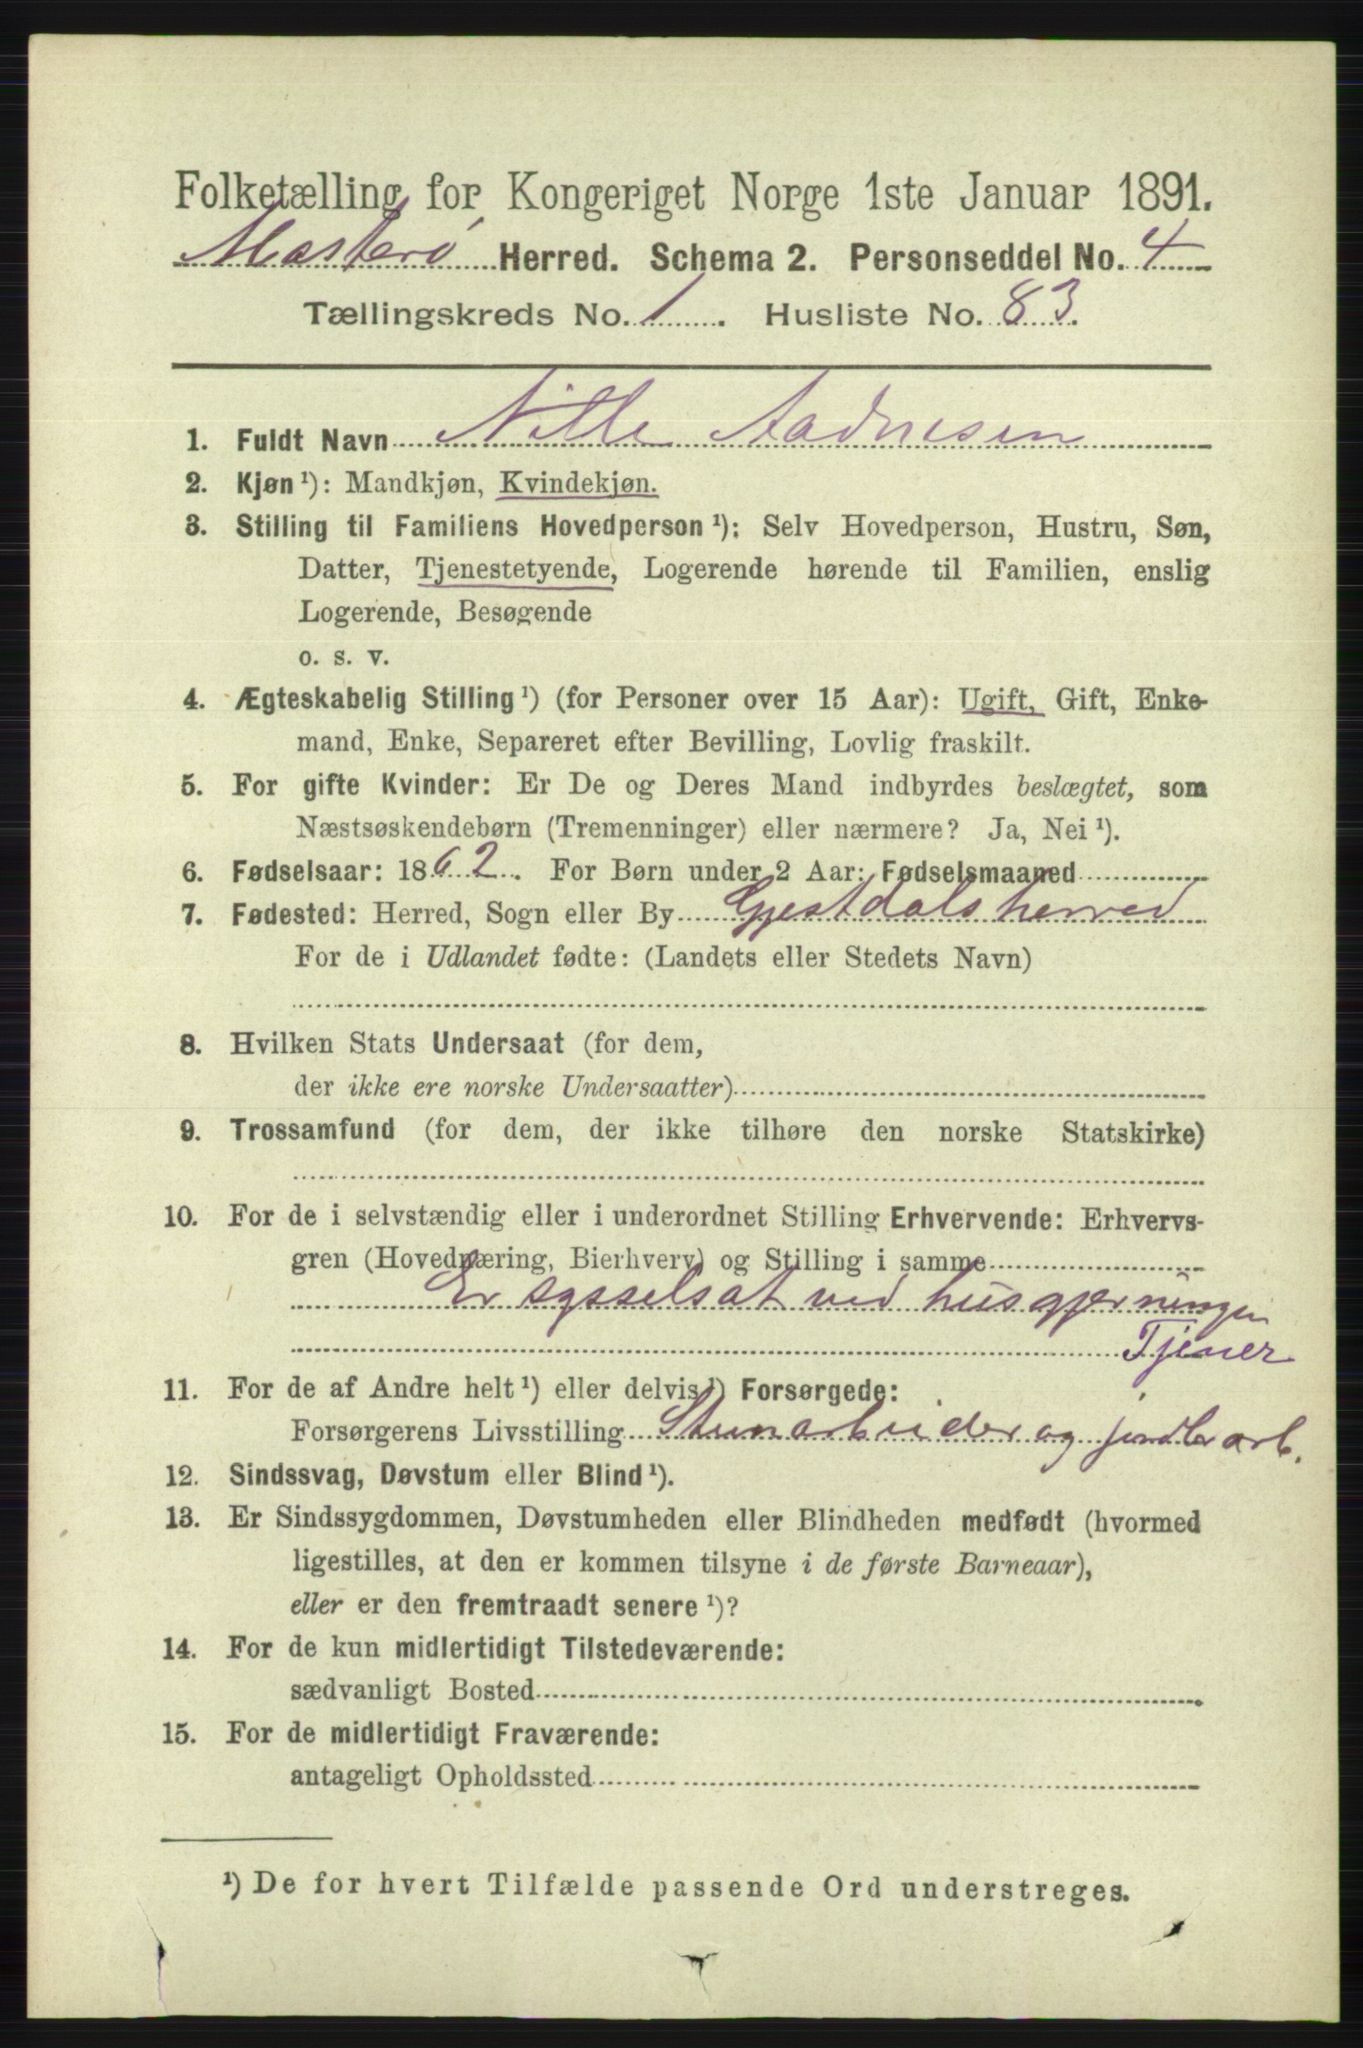 Folketælling for Kongeriget Norge 1ste Januar 1891.
Mosterø Herred. Schema 2. Personseddel No. 4
Tællingskreds No. 1. Husliste No. 83.
1. Fuldt Navn Nille Aadnesen
2. Kjøn ¹): Mandkjøn, Kvindekjøn.
3. Stilling til Familiens Hovedperson ¹): Selv Hovedperson, Hustru, Søn,
Datter, Tjenestetyende, Logerende hørende til Familien, enslig
Logerende, Besøgende
o. s. v.
4. Ægteskabelig Stilling ¹) (for Personer over 15 Aar): Ugift, Gift, Enke-
mand, Enke, Separeret efter Bevilling, Lovlig fraskilt.
5. For gifte Kvinder: Er De og Deres Mand indbyrdes beslægtet, som
Næstsøskendebørn (Tremenninger) eller nærmere? Ja, Nei ¹).
6. Fødselsaar: 1862. For Børn under 2 Aar: Fødselsmaaned
7. Fødested: Herred, Sogn eller By Gjestdals herred
For de i Udlandet fødte: (Landets eller Stedets Navn)
8. Hvilken Stats Undersaat (for dem,
der ikke ere norske Undersaatter)
9. Trossamfund (for dem, der ikke tilhøre den norske Statskirke)
10. For de i selvstændig eller i underordnet Stilling Erhvervende: Erhvervs-
gren (Hovednæring, Bierhverv) og Stilling i samme
Er sysselsat ved husgjerningen
Tjener
11. For de af Andre helt ¹) eller delvis ¹) Forsørgede:
Forsørgerens Livsstilling Stenarbeider og jordbr arb.
12. Sindssvag, Døvstum eller Blind ¹).
13. Er Sindssygdommen, Døvstumheden eller Blindheden medfødt (hvormed
ligestilles, at den er kommen tilsyne i de første Barneaar),
eller er den fremtraadt senere ¹)?
14. For de kun midlertidigt Tilstedeværende:
sædvanligt Bosted
15. For de midlertidigt Fraværende:
antageligt Opholdssted
¹) De for hvert Tilfælde passende Ord understreges.